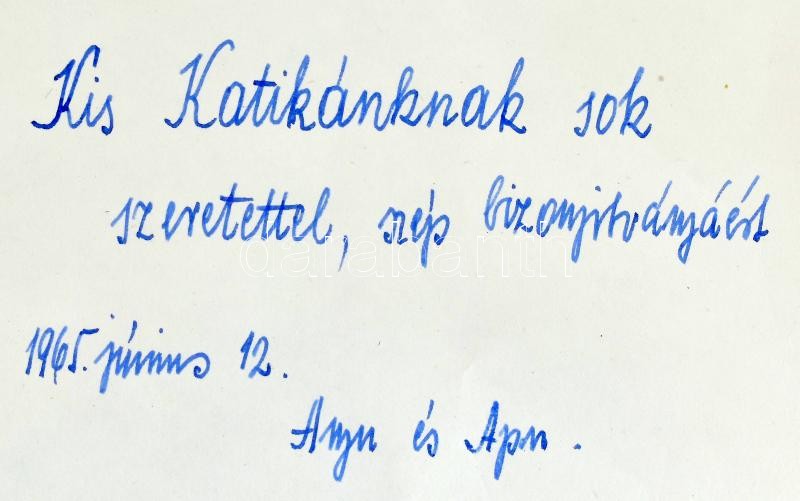 Kis Katikánknak sok
szeretettel, szép bizonyitványáért
darabanth
1965. június 12.
Anyu és Apu.